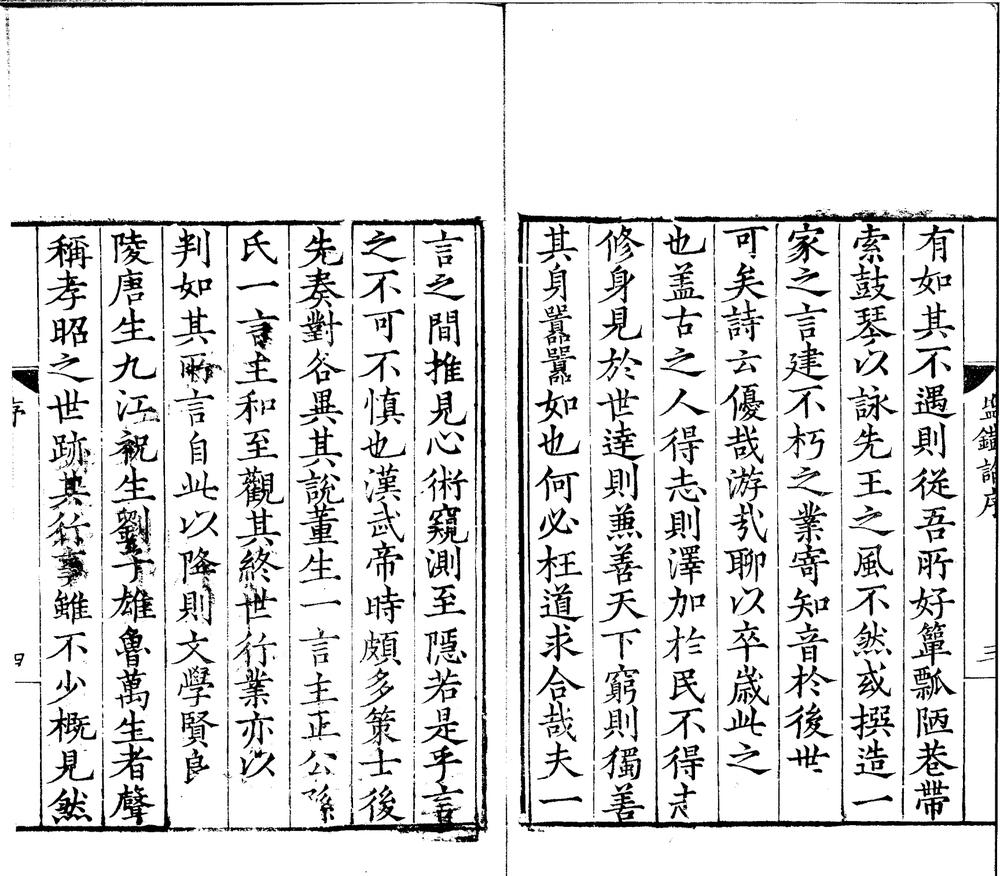 鹽鐵論序 三
有如其不遇則從吾所好簞瓢陋巷帶
索鼓琴以詠先王之風不然或撰造一
家之言建不朽之業寄知音於後世
可矣詩云優哉游哉聊以卒歲此之
也盖古之人得志則澤加於民不得志
修身見於世逹則兼善天下窮則獨善
其身囂囂如也何必枉道求合哉夫一
言之間推見心術窺測至隱若是乎言
之不可不慎也漢武帝時頗多策士後
先奏對各異其說董生一言主正公孫
氏一言主和至觀其終世行業亦以
判如其兩言自此以降則文學賢良
陵唐生九江祝生劉子雄魯萬生者聲
稱孝昭之世跡其行事雖不少概見然
序 四